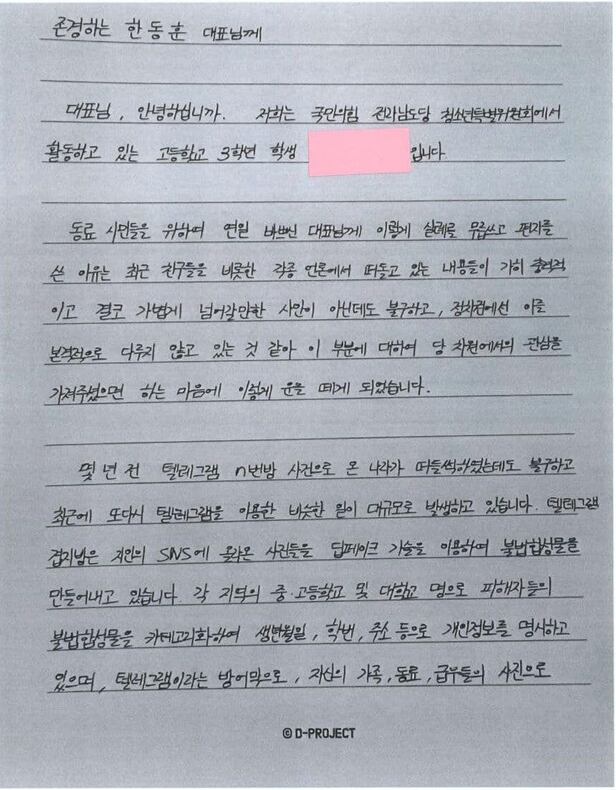 존경하는 한동훈 대표님께
대표님, 안녕하십니까. 저희는 국민의힘 전라남도당 청소년특별위원회에서
활동하고 있는 고등학교 3학년 학생 입니다
동료 시민들을 위하여 연일 바쁘신 대표님께 이렇게 실례로 무릅쓰고 편지를
쓴 이유는 최근 친구들을 비롯한 각종 언론에서 떠돌고 있는 내용들이 가히 충격적
이고 결코 가볍게 넘어갈만한 사안이 아닌데도 불구하고, 정치권에선 이를
본격적으로 다루지 않고 있는 것 같아 이 부분에 대하여 당 차원에서의 관심을
가져주셨으면 하는 마음에 이렇게 운을 떼게 되었습니다.
몇 년 전 텔레그램 n번방 사건으로 온 나라가 떠들썩하였는데도 불구하고
최근에 또다시 텔레그램을 이용한 비슷한 일이 대규모로 발생하고 있습니다. 텔레그램
겹지방은 지인의 SNS에 올라온 사진들을 딥페이크 기술을 이용하여 불법합성물을
만들어내고 있습니다. 각 지역의 중·고등학교 및 대학교 명으로 피해자들의
불법합성물을 카테고리화하여 생년월일, 학번, 주소 등으로 개인정보를 명시하고
있으며, 텔레그램이라는 방어막으로, 자신의 가족, 동료, 급우들의 사진으로
© D-PROJECT